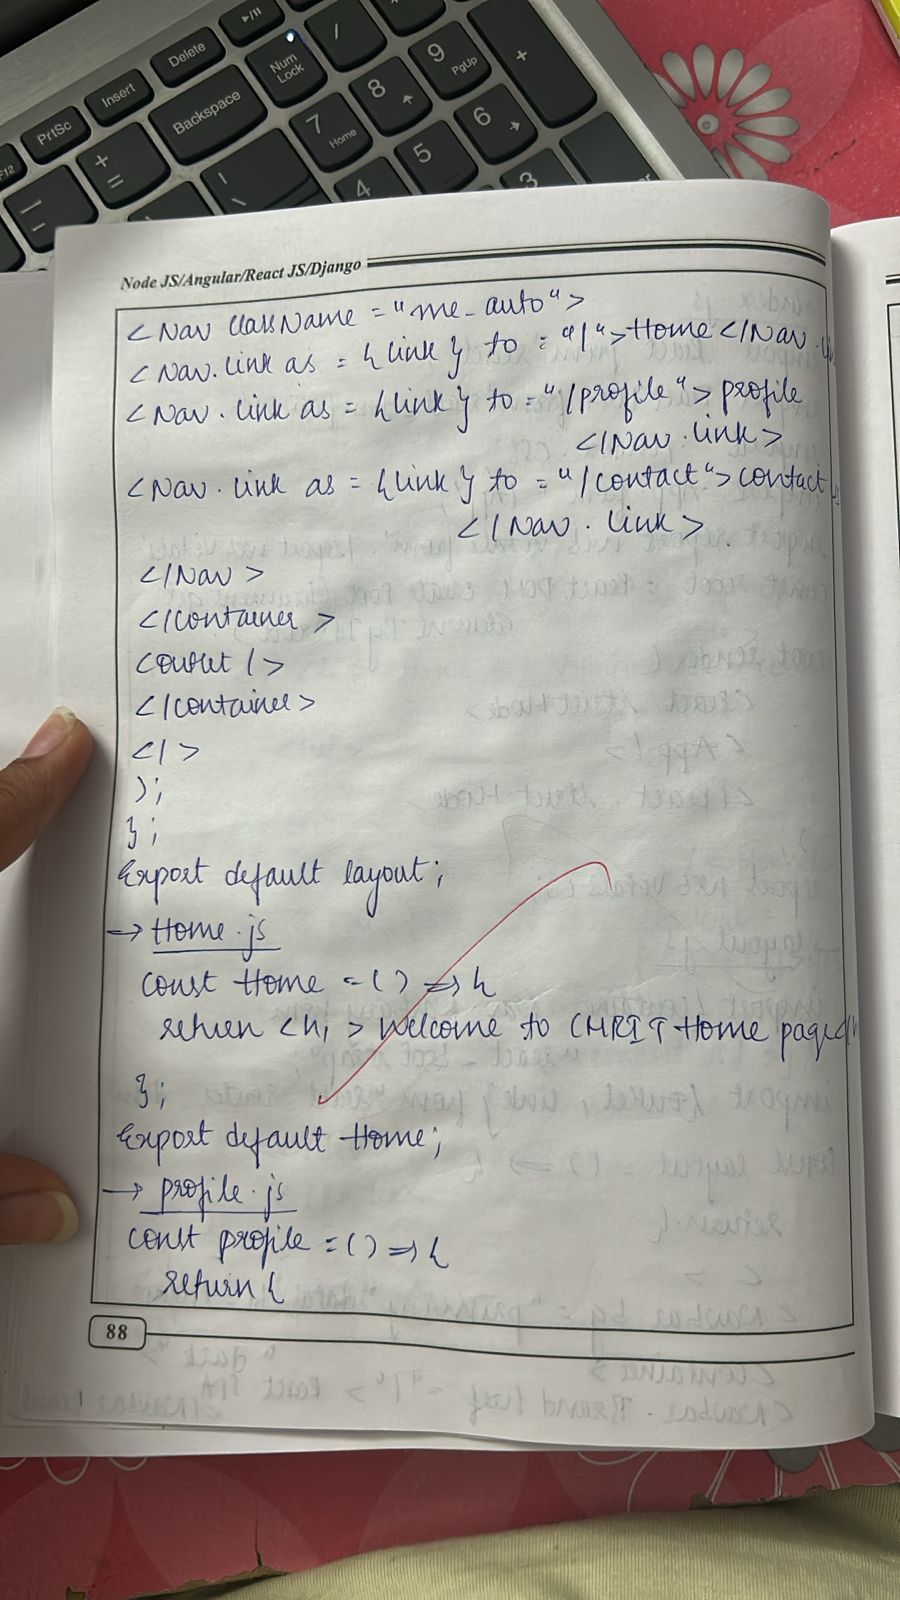 PrtSc
Insert
Delete
Backspace
Num Lock
7 Home
8
9 PgUp
+
4
5
6
3
F12
/
Node JS/Angular/React JS/Django
<Nav className = "me-auto">
<Nav.link as = {link} to = "/">Home </Nav.
<Nav.link as = {link} to = "/profile"> profile
</Nav.link>
<Nav.link as = {link} to = "/contact"> contact
</Nav.link>
</Nav>
</container>
<outlet />
</container>
</>
);
};
Export default layout;
→ Home.js
const Home = () => {
return <h1> Welcome to CMRIT Home page
};
Export default Home;
→ profile.js
const profile = () => {
return {
88